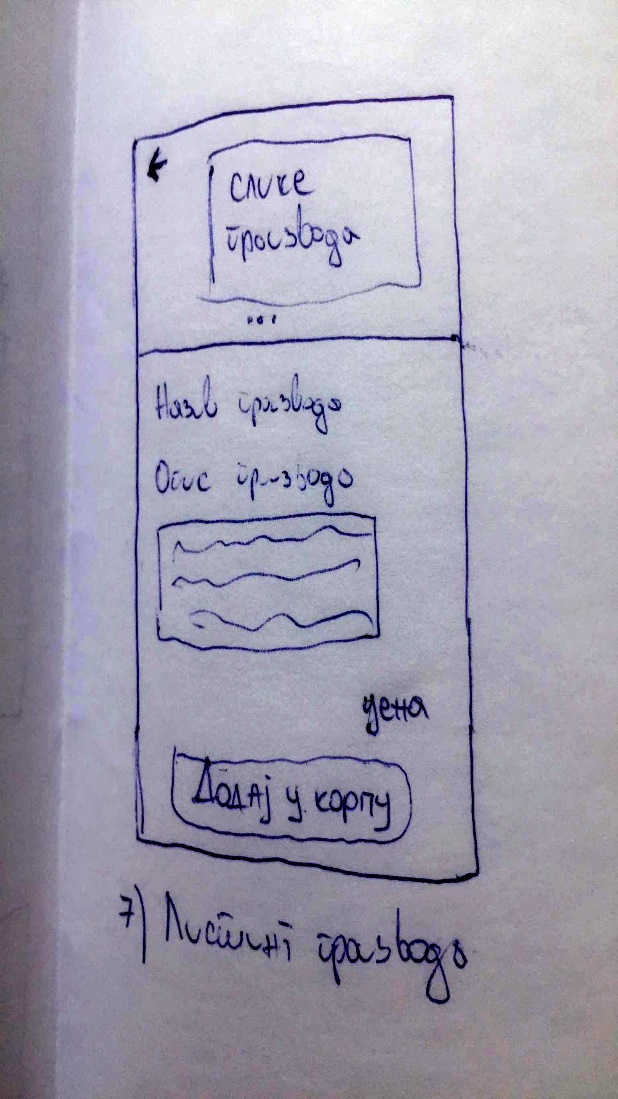 ←
слике
производа
...
Назив производа
Опис производа
цена
Додај у корпу
7) Листинг производа